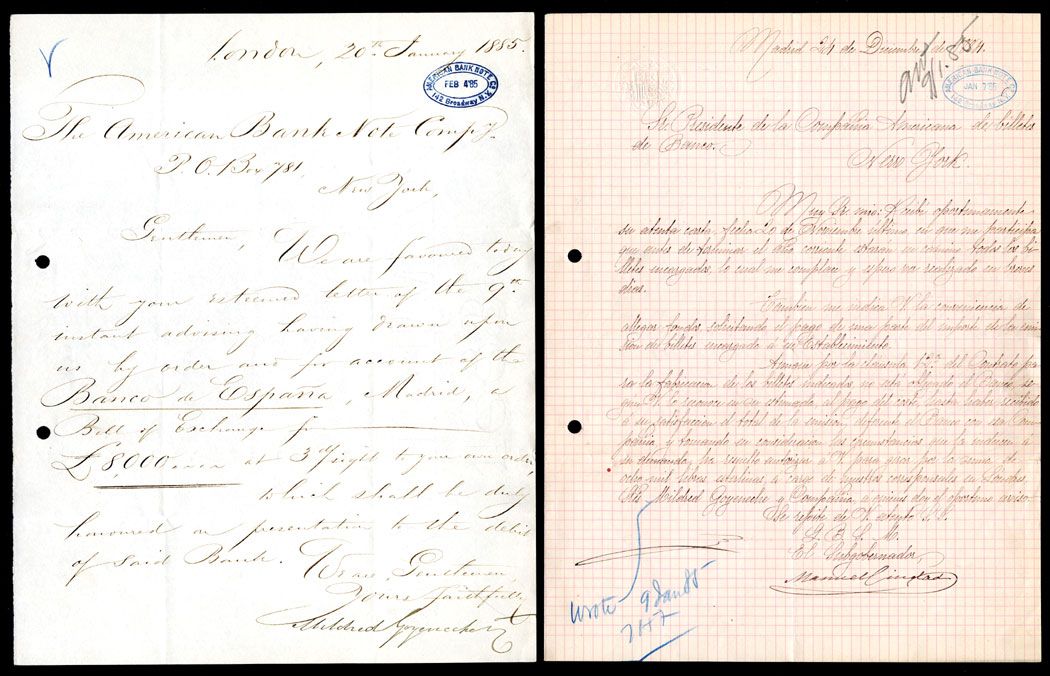 London, 20th January 1885.
AMERICAN BANK NOTE CO.
FEB 4 '85
142 Broadway N.Y.
The American Bank Note Compy.
P. O. Box 781,
New York,
Gentlemen,
We are favoured today
with your esteemed letter of the 9th
instant advising having drawn upon
us by order and for account of the
Banco de España, Madrid, a
Bill of Exchange for
£8,000 at 3 d/sight to your own order,
which shall be duly
honoured on presentation to the debit
of said Bank. We are, Gentlemen,
Yours faithfully,
Mildred Goyeneche
Madrid 24 de Diciembre de 1884.
AMERICAN BANK NOTE CO.
JAN 9 '85
142 Broadway N.Y.
Sr. Presidente de la Compañia Americana de billetes
de Banco.
New York.
Muy Sr. mio: Recibí oportunamente
su atenta carta fecha 29 de Noviembre último en que me participa
que antes de terminar el año corriente estarán en camino todos los bi-
lletes encargados, lo cual me complace y espero ver realizado en breves
dias.
Tambien me indica V. la conveniencia de
allegar fondos solicitando el pago de una parte del importe de la emi-
sion de billetes encargado á ese Establecimiento.
Aunque por la cláusula 12ª del Contrato pa-
ra la fabricacion de los billetes indicados no está obligado el Banco, se-
gun V. lo reconoce en su estimada, al pago del coste hasta haber recibido
á su satisfaccion el total de la emision, deferente el Banco con esa Com-
pañia y tomando en consideracion las circunstancias que la inducen á
su demanda, ha resuelto autorizar á V. para girar por la suma de
ocho mil libras esterlinas á cargo de nuestros corresponsales en Londres,
Sres Mildred Goyeneche y Compañia á quienes doy el oportuno aviso.
Se repite de V. atento S.S.
Q. B. S. M.
El Subgobernador,
Manuel Ciudad
wrote 9 Jan 85